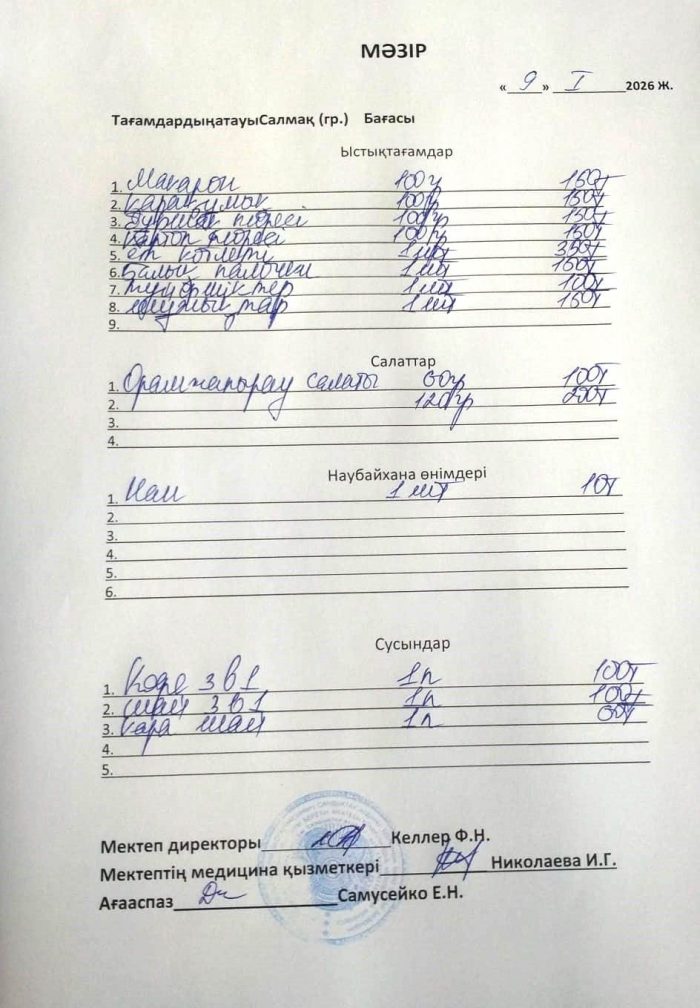 МӘЗІР
« 9 » I 2026 ж.
ТағамдардыңатауыСалмақ (гр.) Бағасы
Ыстықтағамдар
1. Макарон 100гр 150т
2. қарақұмық 100гр 150т
3. бұршақ пюресі 100гр 150т
4. картоп пюресі 100гр 150т
5. ет котлеті 1шт 350т
6. балық палочки 1шт 150т
7. тушпешіктер 1шт 100т
8. 1шт 150т
9.
Салаттар
1. Орамжапырақ салаты 60гр 100т
2. 120гр 200т
3.
4.
Наубайхана өнімдері
1. Нан 1шт 10т
2.
3.
4.
5.
6.
Сусындар
1. Кофе 3 в 1 1п 100т
2. шай 3 в 1 1п 100т
3. қара шай 1п 60т
4.
5.
Мектеп директоры Келлер Ф.Н.
Мектептің медицина қызметкері Николаева И.Г.
Ағааспаз Самусейко Е.Н.